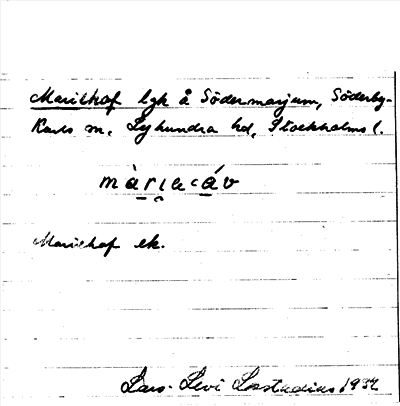 Mariehof lgh å Södermarjum, Söderby-
Karls sn, Lyhundra hd, Stockholms l.
Mariehof ek.
Lars-Levi Læstadius 1934